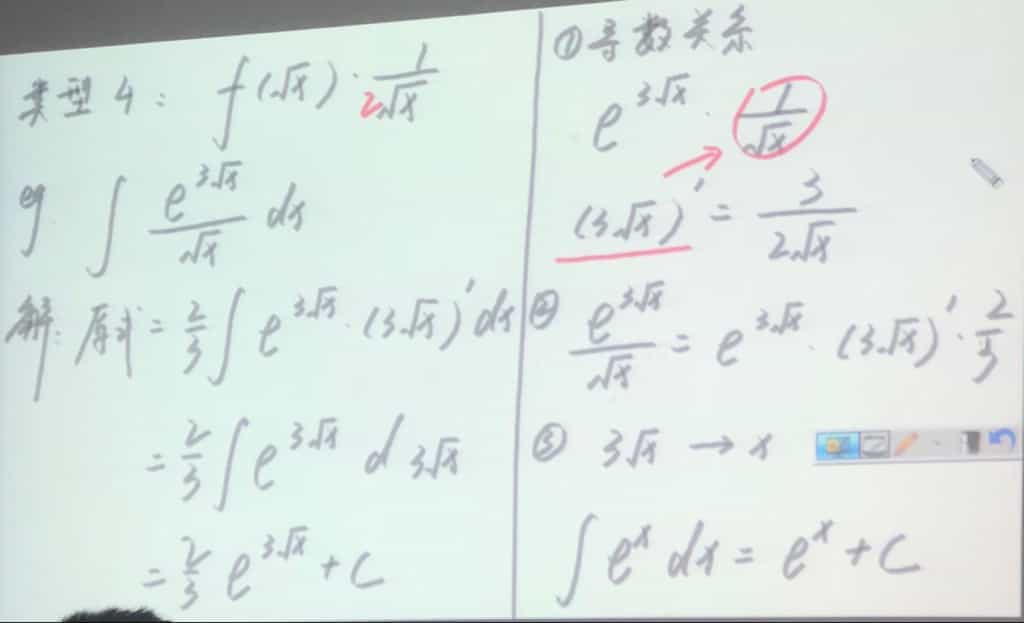 类型4: f(√x)·1/2√x
eg ∫ e^{3√x}/√x dx
解:原式= 2/3 ∫ e^{3√x}·(3√x)'dx
= 2/3 ∫ e^{3√x} d 3√x
= 2/3 e^{3√x} + C
①导数关系
e^{3√x}· 1/√x
(3√x)' = 3/2√x
② e^{3√x}/√x = e^{3√x}·(3√x)'·2/3
③ 3√x → x
∫ e^x dx = e^x + C